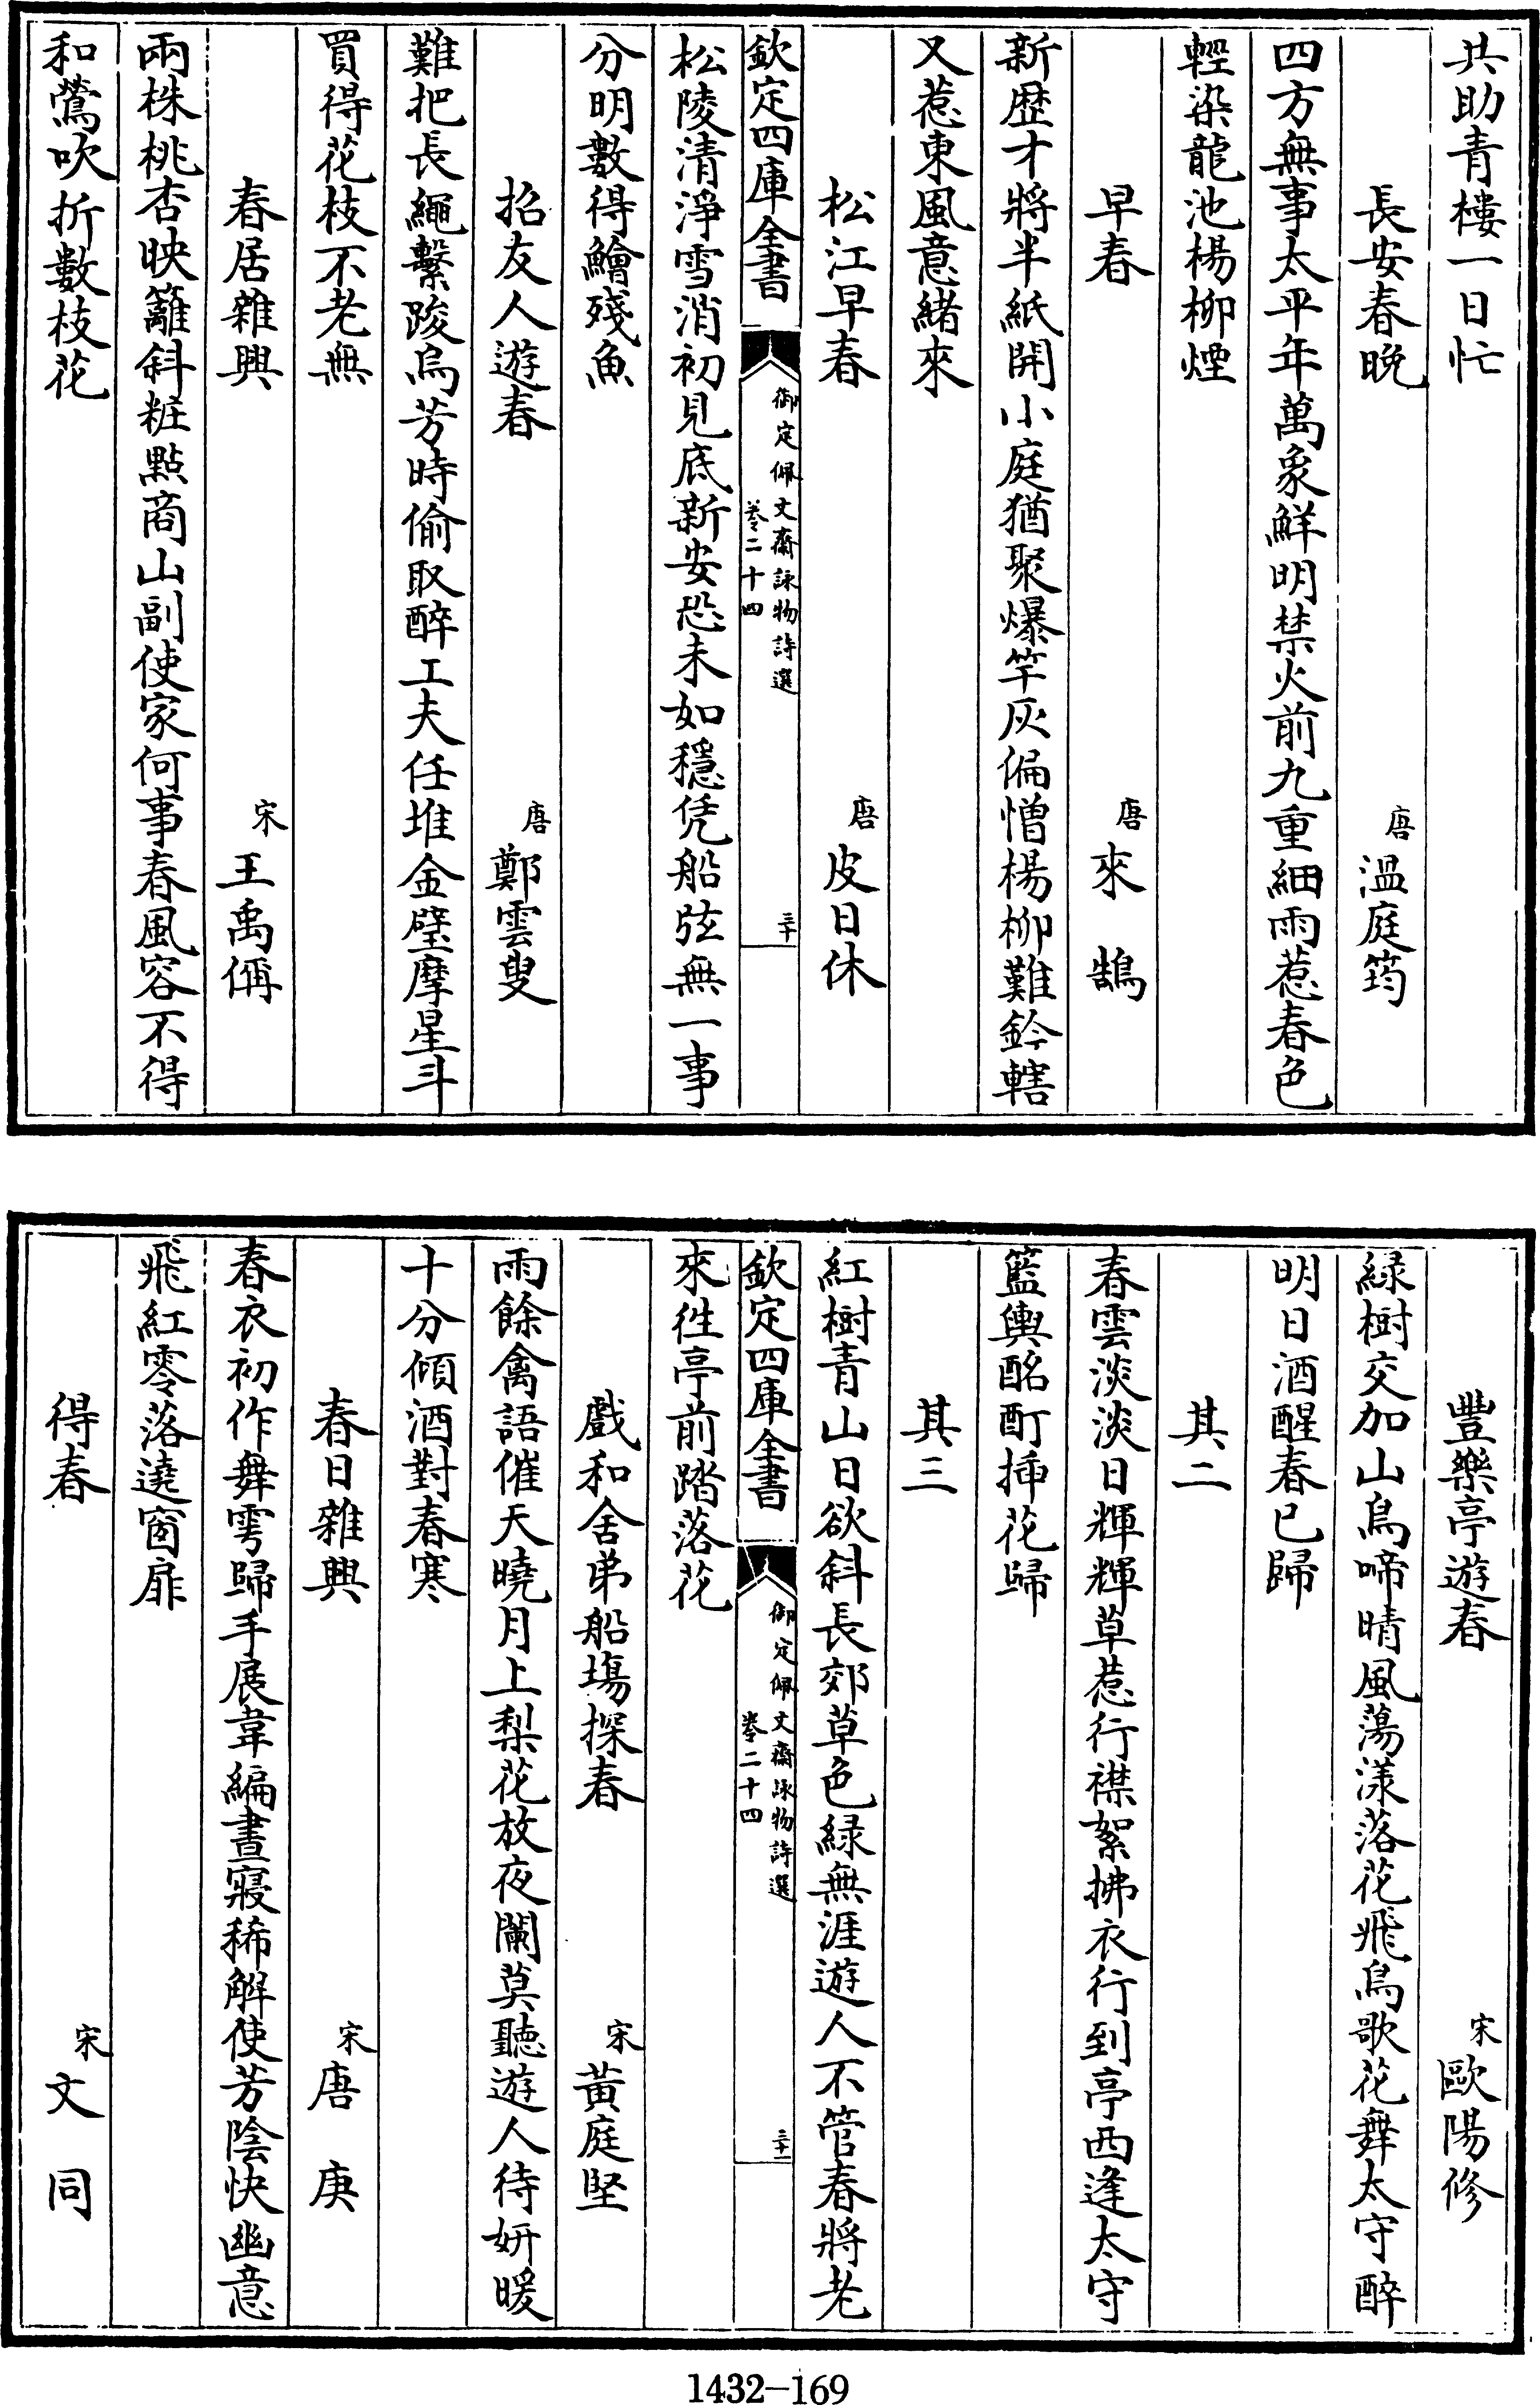 共助青樓一日忙
長安春晚 唐 溫庭筠
四方無事太平年萬象鮮明禁火前九重細雨惹春色
輕染龍池楊柳煙
早春 唐 來鵠
新歴才將半紙開小庭猶聚爆竿灰偏憎楊柳難鈐轄
又惹東風意緒來
松江早春 唐 皮日休
欽定四庫全書 御定佩文齋詠物詩選 卷二十四 三十
松陵清淨雪消初見底新安恐未如穩凭船舷無一事
分明數得鱠殘魚
招友人遊春 唐 鄭雲叟
難把長繩繫踆烏芳時偷取醉工夫任堆金璧摩星斗
買得花枝不老無
春居雜興 宋 王禹偁
兩株桃杏映籬斜粧點商山副使家何事春風容不得
和鶯吹折數枝花
豐樂亭遊春 宋 歐陽修
緑樹交加山鳥啼晴風蕩漾落花飛鳥歌花舞太守醉
明日酒醒春已歸
其二
春雲淡淡日輝輝草惹行襟絮拂衣行到亭西逢太守
籃輿酩酊揷花歸
其三
紅樹青山日欲斜長郊草色緑無涯遊人不管春將老
欽定四庫全書 御定佩文齋詠物詩選 卷二十四 三十一
來徃亭前踏落花
戲和舍弟船塲探春 宋 黃庭堅
雨餘禽語催天曉月上梨花放夜闌莫聽遊人待妍暖
十分傾酒對春寒
春日雜興 宋 唐庚
春衣初作舞雩歸手展韋編晝寢稀解使芳陰快幽意
飛紅零落遶窗扉
得春 宋 文同
1432-169